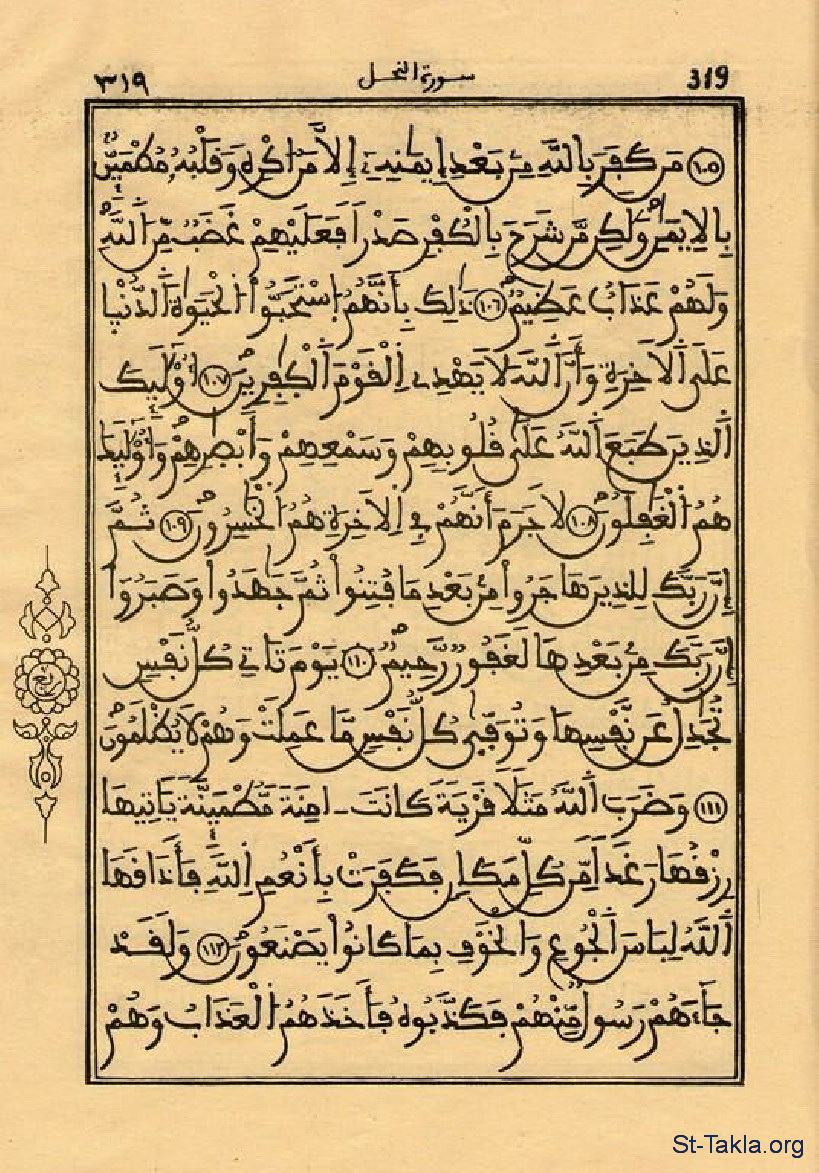 ٣١٩ سورة النحل 319
١٠٥ مَن كَفَرَ بِاللَّهِ مِنۢ بَعْدِ إِيمَٰنِهِۦٓ إِلَّا مَنُ ا۟كْرِهَ وَقَلْبُهُۥ مُطْمَئِنٌّۢ
بِالِايمَٰنِ وَلَٰكِن مَّن شَرَحَ بِالْكُفْرِ صَدْرًا فَعَلَيْهِمْ غَضَبٌ مِّنَ اَللَّهِ
وَلَهُمْ عَذَابٌ عَظِيمٌ ١٠٦ ذَٰلِكَ بِأَنَّهُمُ اُسْتَحَبُّوا۟ الْحَيَوٰةَ اَلدُّنْيَا
عَلَى اَلَاخِرَةِ وَأَنَّ اَللَّهَ لَا يَهْدِے اِلْقَوْمَ اَلْكَٰفِرِينَ ١٠٧ ا۟وْلَٰٓئِكَ
اَلذِينَ طَبَعَ اَللَّهُ عَلَىٰ قُلُوبِهِمْ وَسَمْعِهِمْ وَأَبْصَٰرِهِمْ وَأُوْلَٰٓئِكَ
هُمُ اُلْغَٰفِلُونَ ١٠٨ لَا جَرَمَ أَنَّهُمْ فِے اِلَاخِرَةِ هُمُ اُلْخَٰسِرُونَ ١٠٩ ثُمَّ
إِنَّ رَبَّكَ لِلذِينَ هَاجَرُوا۟ مِنۢ بَعْدِ مَا فُتِنُوا۟ ثُمَّ جَٰهَدُوا۟ وَصَبَرُوٓا۟
إِنَّ رَبَّكَ مِنۢ بَعْدِهَا لَغَفُورٌ رَّحِيمٌ ١١٠ يَوْمَ تَاتِے كُلُّ نَفْسٍ
تُجَٰدِلُ عَن نَّفْسِهَا وَتُوَفّىٰ كُلُّ نَفْسٍ مَّا عَمِلَتْ وَهُمْ لَا يُظْلَمُونَ
١١١ وَضَرَبَ اَللَّهُ مَثَلًا قَرْيَةً كَانَتَ ـ امِنَةً مُّطْمَئِنَّةً يَاتِيهَا
رِزْقُهَا رَغَدًا مِّن كُلِّ مَكَانٍ فَكَفَرَتْ بِأَنْعُمِ اِللَّهِ فَأَذَاقَهَا
اَللَّهُ لِبَاسَ اَلْجُوعِ وَالْخَوْفِ بِمَا كَانُوا۟ يَصْنَعُونَ ١١٢ وَلَقَدْ
جَآءَهُمْ رَسُولٌ مِّنْهُمْ فَكَذَّبُوهُ فَأَخَذَهُمُ اُلْعَذَابُ وَهُمْ
St-Takla.org